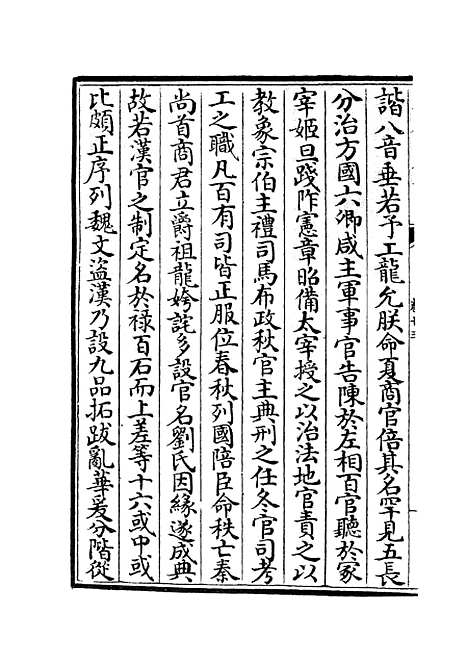 諧八音垂若予工龍允朕命夏商官倍其名罕見五長
分治方國六卿咸主軍事官告陳於左相百官聽於冢
宰姬旦踐阼憲章昭備太宰授之以治法地官責之以
教象宗伯主禮司馬布政秋官主典刑之任冬官司考
工之職凡百有司皆正服位春秋列國陪臣命秩亡秦
尚首商君立爵祖龍姱詫多設官名劉氏因緣遂成典
故若漢官之制定名於祿百石而上差等十六或中或
比頗正序列魏文盜漢乃設九品拓跋亂華爰分階從